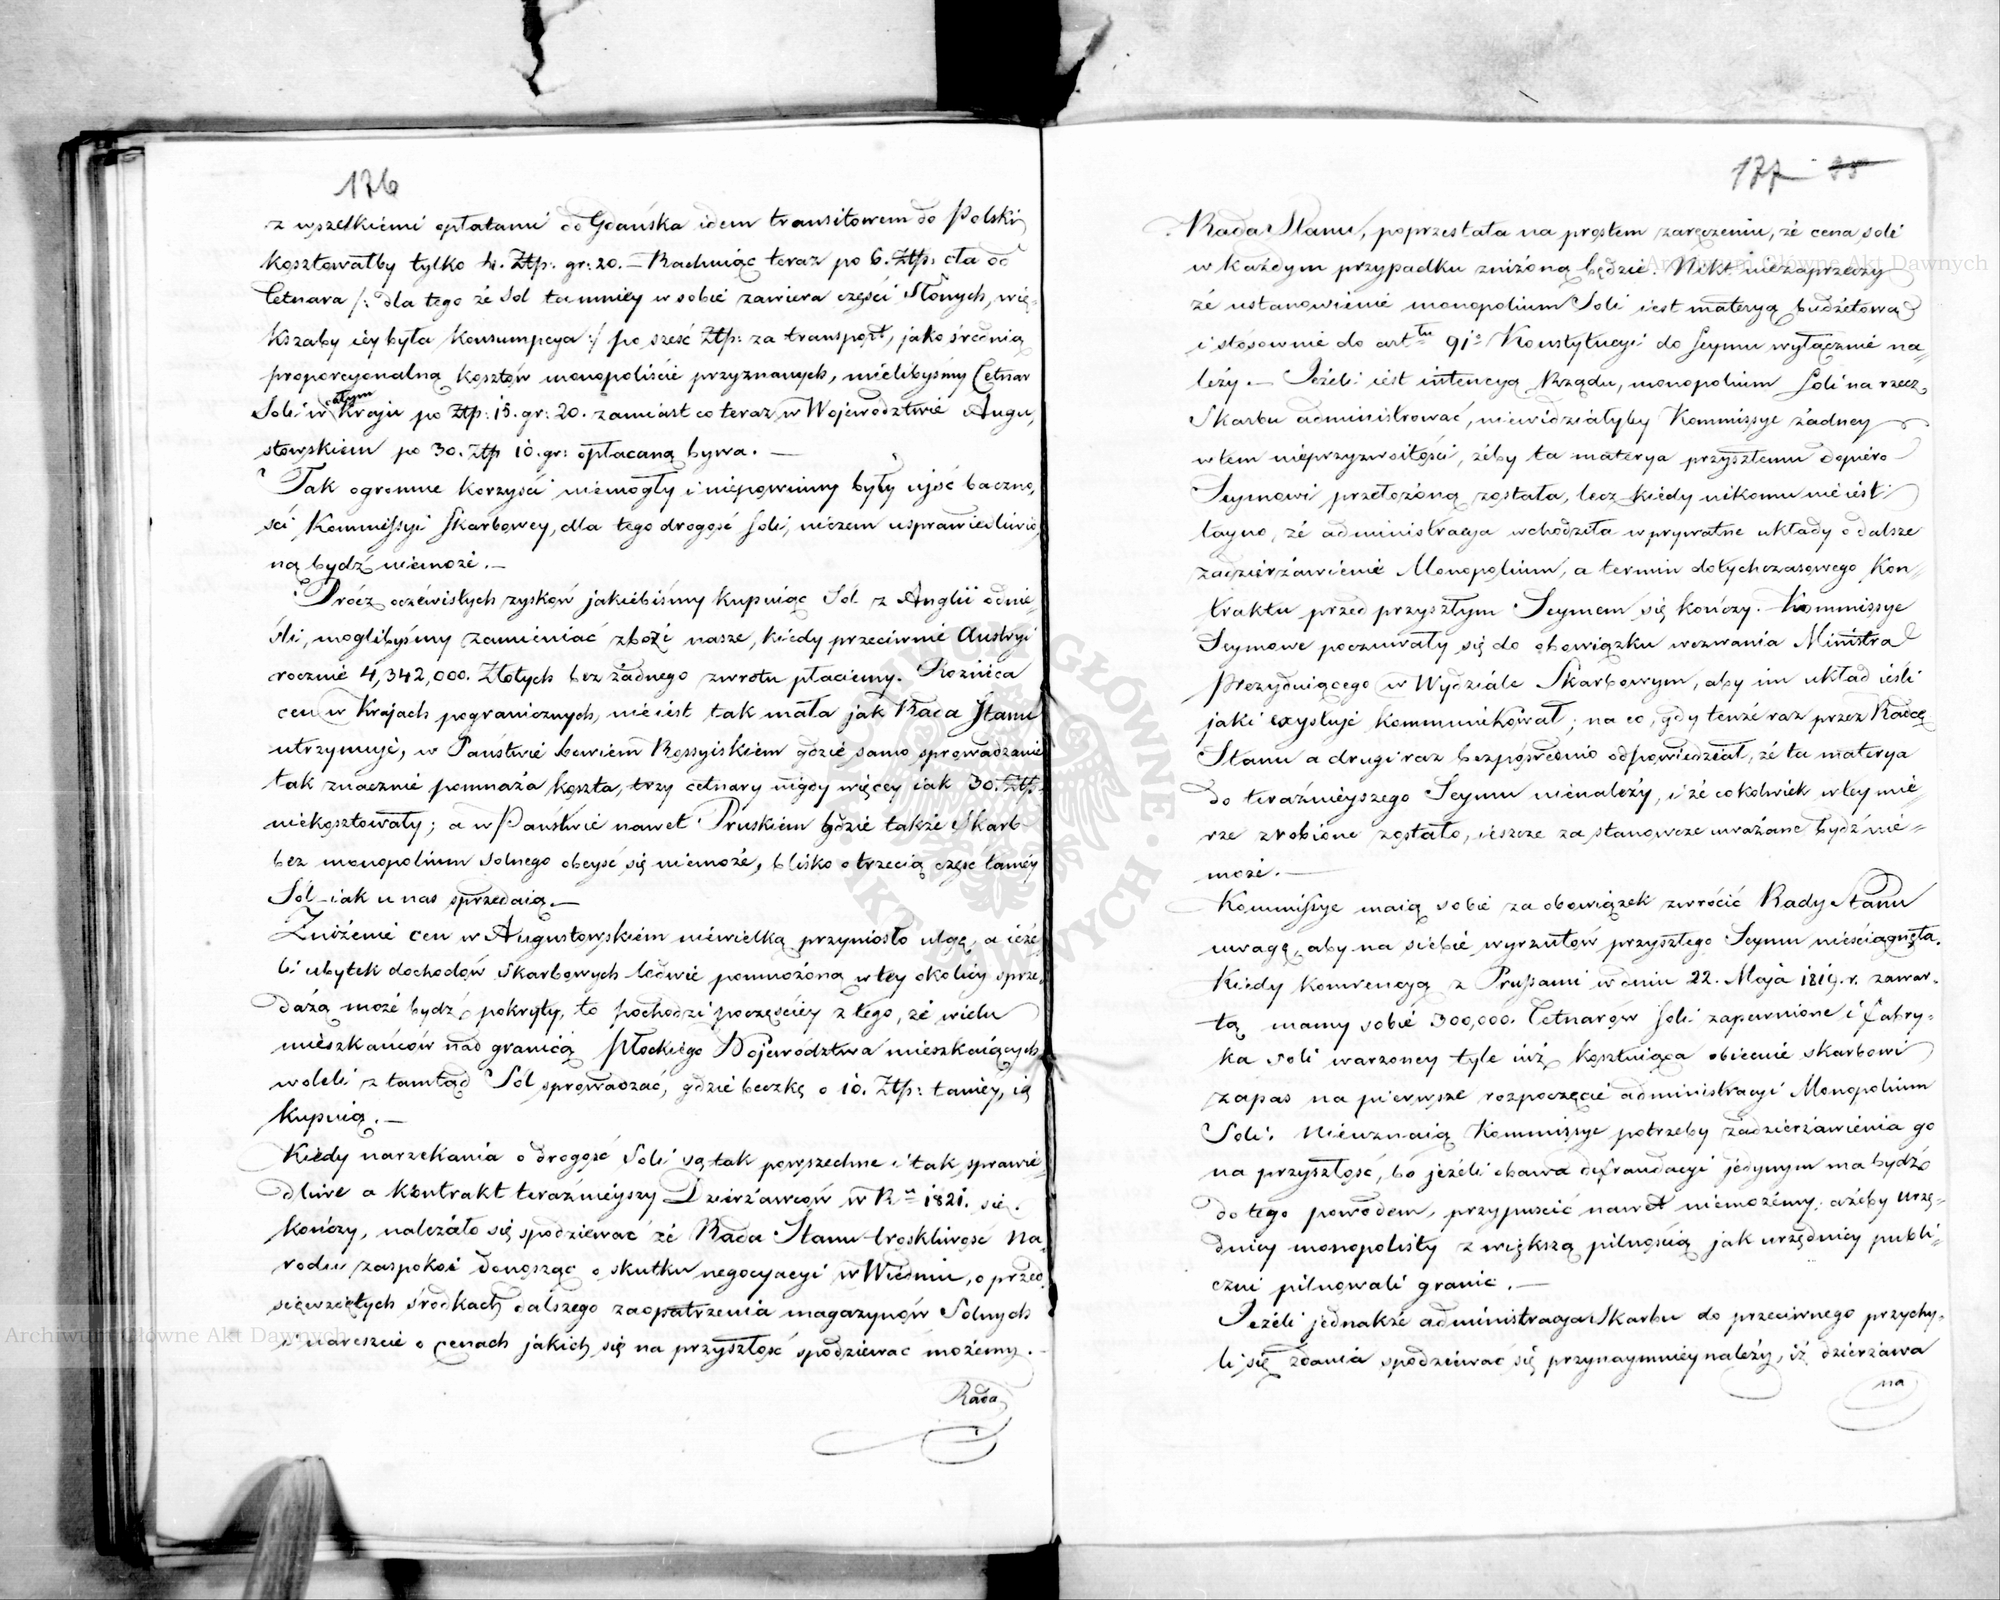 176
z wszelkiemi opłatami od Gdańska idem transitowem do Polski
kosztowałby tylko 4. Ztp: gr: 20. – Rachuiąc teraz po 6. Ztp: cła od
Cetnara /: dla tego że Sol ta mniey w sobie zawiera części Słonych, wię-
kszaby iey była Konsumpcya :/ po sześć Ztp: za transport, jako średnią
proporcyonalną kosztów monopoliście przyznanych, mielibysmy Cetnar
Soli w całym Kraju po Ztp: 15. gr: 20. zamiast co teraz w Województwie Augu,
stowskiem po 30. Ztp 10. gr: opłacaną bywa. —
Tak ogromne korzyści niemogły i niepowinny były ujść baczno,
ści Kommissyi Skarbowey, dla tego drogość soli, niczem usprawiedliwio,
ną bydź niemoże. —
Prócz oczewistych zysków jakiebiśmy kupuiąc Sol z Anglii odnie
śli, moglibyśmy zamieniać zboże nasze, kiedy przeciwnie Austryi
rocznie 4,342,000. Złotych bez żadnego zwrotu płaciemy. Roznica
cen w Krajach pogranicznych, nie iest tak mała jak Rada Stanu
utrzymuje, w Państwie bowiem Rossyiskiem gdzie samo sprowadzanie
tak znacznie pomnaża koszta, trzy cetnary nigdy więcey iak 30. Ztp.
niekosztowały; a w Panstwie nawet Pruskiem gdzie także Skarb
bez monopolium solnego obeysć się niemoże, blisko o trzecią częsc taniéy
Sól iak u nas sprzedaią. —
Zniżenie cen w Augustowskiem niewielką przyniosło ulgę, a ieże
li ubytek dochodów skarbowych ledwie pomnożoną w tey okolicy sprze,
dażą może bydź pokryty, to pochodzi poczęściéy z tego, że wielu
mieszkańców nad granicą Płockiego Wojewodztwa mieszkaiących
woleli z tamtąd Sól sprowadzać, gdzie beczkę o 10. Ztp: taniéy, ią
kupuią. —
Kiedy narzekania o drogość Soli są tak powszechne i tak sprawie
dliwe a kontrakt teraźnieyszy Dzierżawców w Ru 1821. się
kończy, należało się spodziewać że Rada Stanu troskliwosc Na-
rodu zaspokoi donosząc o skutku negocyacyi w Wiedniu, o przed
sięwziętych środkach dalszego zaopatrzenia magazynów Solnych
i nareszcie o cenach jakich się na przyszłość spodziewać możemy. —
Rada
177 35
Rada Stanu, poprzestała na prostem zaręczeniu, że cena soli
w każdym przypadku zniżoną będzie. Nikt niezaprzeczy
że ustanowienie monopolium Soli iest materyą budżetową
i stósownie do arttu 91o Konstytucyi do Seymu wyłącznie na-
leży. — Jeżeli iest intencyą Rządu, monopolium Soli na rzecz
Skarbu administrować, niewidziałyby Kommissye żadney
w tem nieprzyzwoitości, żeby ta materya przyszłemu dopiero
Seymowi przełożoną została, lecz kiedy nikomu nie iest
tayno, że administracya wchodziła w prywatne układy o dalsze
zadzierżawienie Monopolium, a termin dotychczasowego Kon-
traktu przed przyszłym Seymem się kończy. — Kommissye
Seymowe poczuwały się do obowiązku wezwania Ministra
Prezyduiącego w Wydziale Skarbowym, aby im układ ieśli
jaki exystuje kommunikował; na co, gdy tenże raz przez Radcę
Stanu a drugi raz bezpośrednio odpowiedział, że ta materya
do teraźnieyszego Seymu nienależy, i że cokolwiek w tey mie-
rze zrobione zostało, ieszcze za stanowcze uważane bydź nie-
może. —
Kommissye maią sobie za obowiązek zwrócić Rady Stanu
uwagę, aby na siebie wyrzutów przyszłego Seymu nieściągnęła.
Kiedy konwencyą z Prussami w dniu 22. Maja 1819. r. zawar-
tą mamy sobie 300,000. Cetnarów soli zapewnione i fabry-
ka soli warzoney tyle już kosztuiąca obiecuie skarbowi
zapas na pierwsze rozpoczęcie administracyi Monopolium
Soli. Nieuznaią Kommissye potrzeby zadzierżawienia go
na przyszłość, bo jeżeli obawa defraudacyi jedynym ma bydź
do tego powodem, przypuscić nawet niemożemy, ażeby urzę-
dnicy monopolisty z większą pilnością jak urzędnicy publi-
czni pilnowali granic. —
Jeżeli jednakże administracya Skarbu do przeciwnego przychy-
li się zdania spodziewać się przynaymniey należy, iż dzierżawa
na
Archiwum Główne Akt Dawnych
Archiwum Główne Akt Dawnych
ARCHIWUM GŁÓWNE · AKT DAWNYCH ·